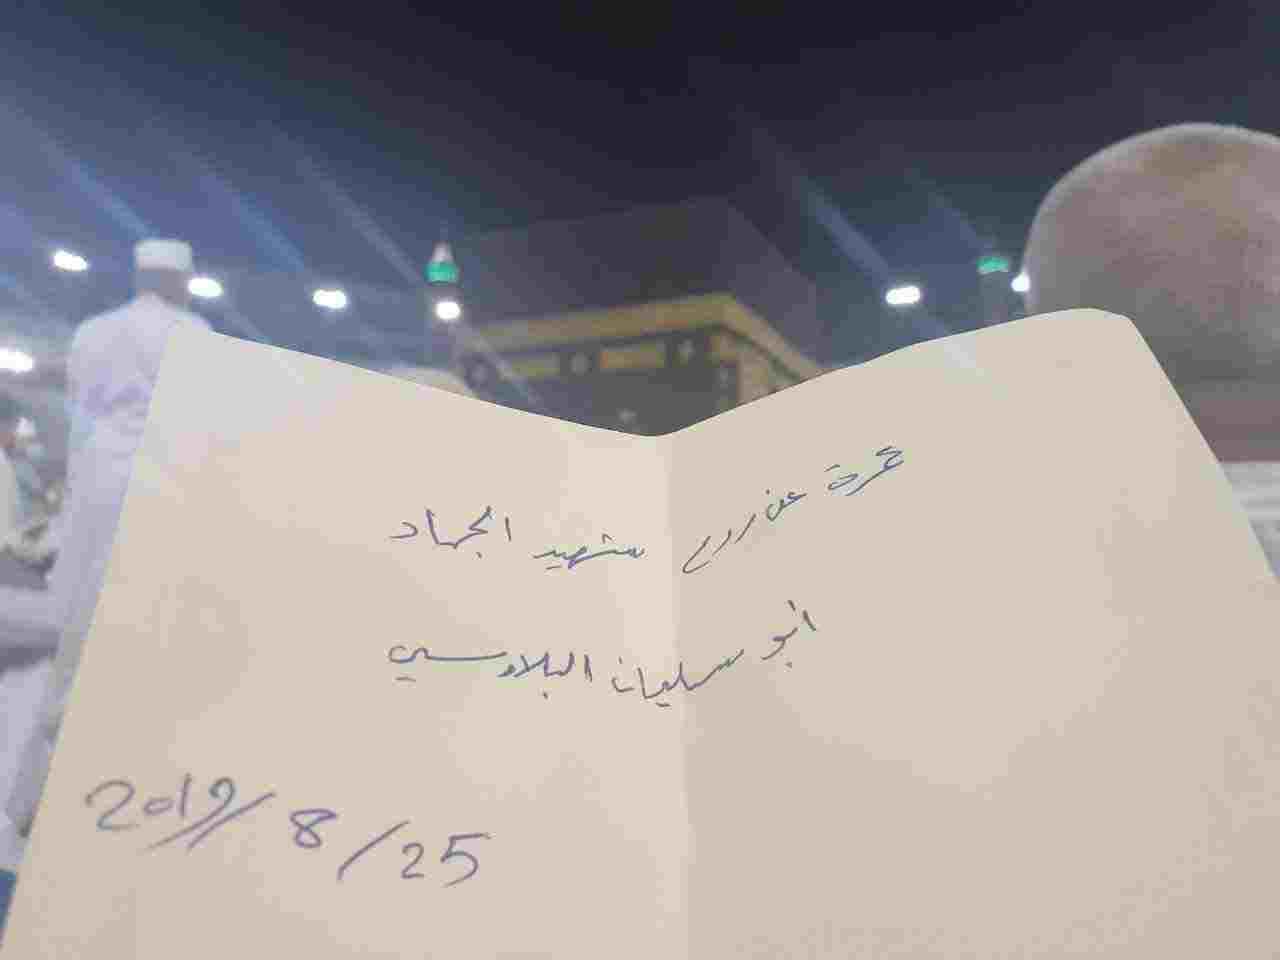 عمرة عن روح شهيد الجهاد
ابو سليمان البلاروسي
2019/8/25